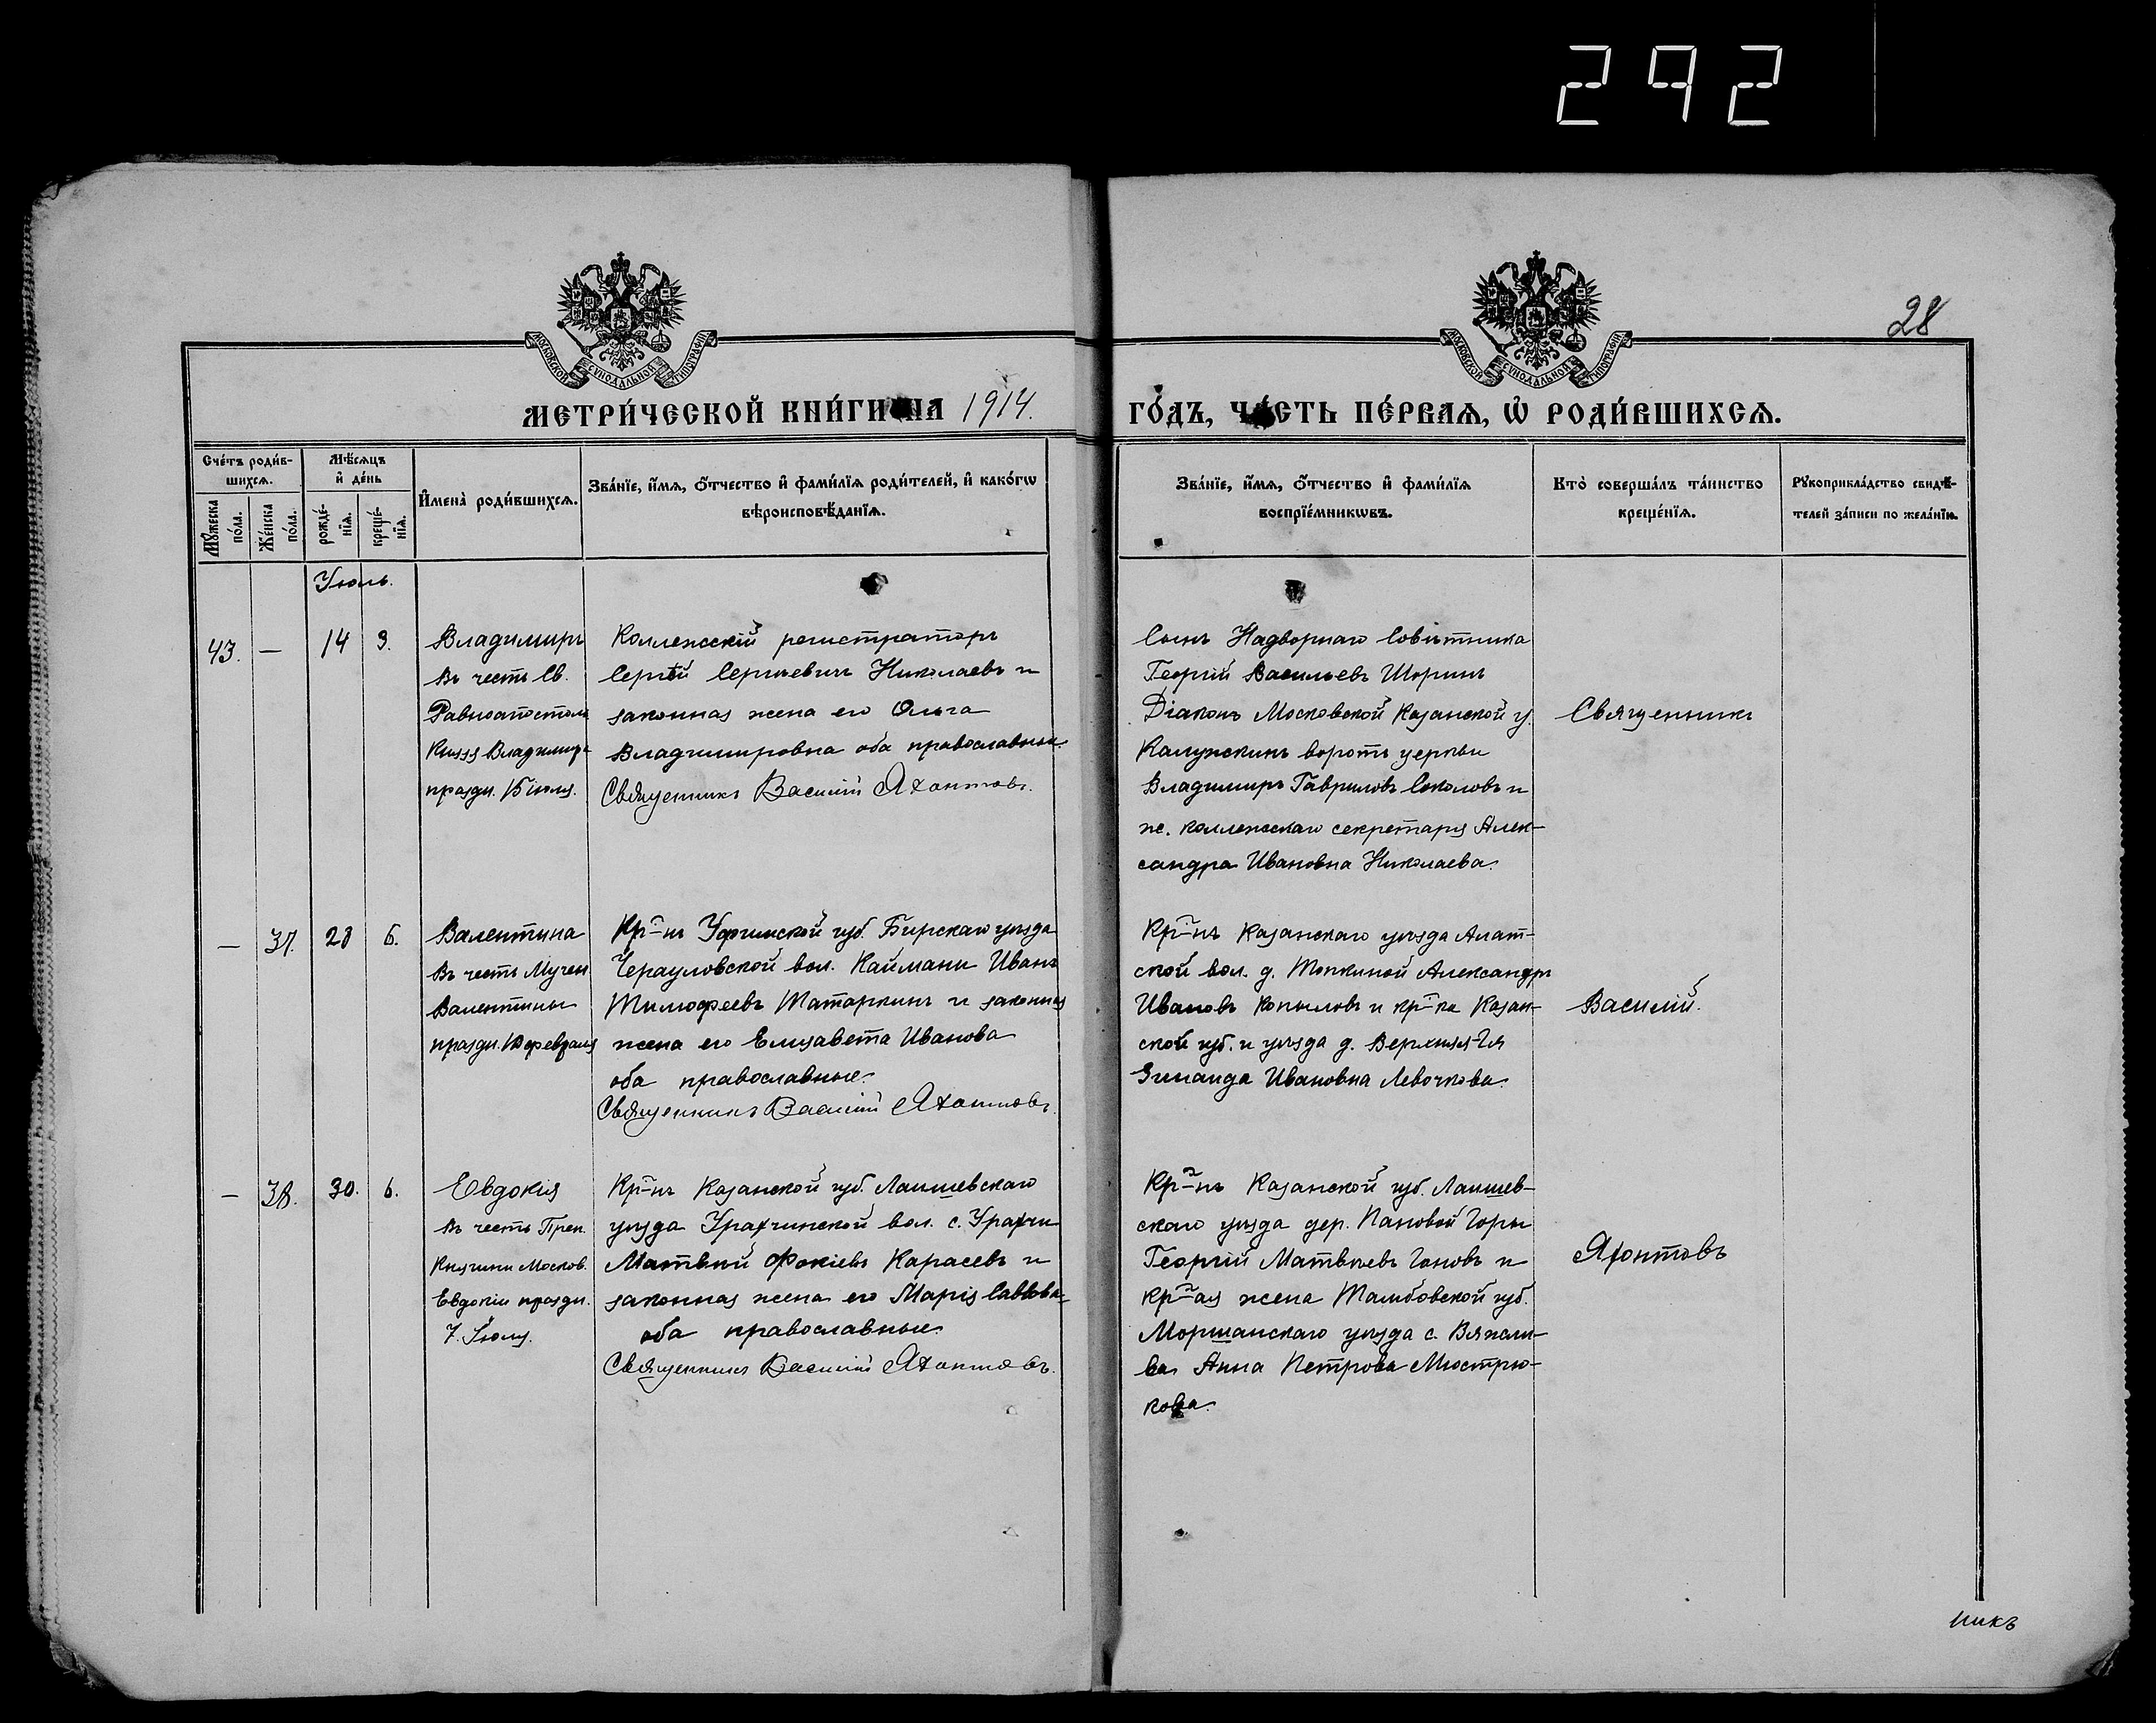 292
28
МОСКОВСКОЙ СѴНОДАЛЬНОЙ ТИПОГРАФІИ
МОСКОВСКОЙ СѴНОДАЛЬНОЙ ТИПОГРАФІИ
МЕТРИ́ЧЕСКОЙ КНИ́ГИ НА 1914. ГО́ДЪ, ЧА́СТЬ ПЕ́РВАѦ, Ѡ҆ РОДИ́ВШИХСѦ.
Сче́тъ роди́в-
шихсѧ.
Мꙋ́жеска по́ла.
Же́нска по́ла.
Мѣ́сѧцъ и҆ де́нь
рожде́-нїѧ.
креще́-нїѧ.
И҆мена̀ роди́вшихсѧ.
Зва́нїе, и҆́мѧ, о҆́тчество и҆ фами́лїѧ роди́телей, и҆ како́гѡ
вѣроисповѣ́данїѧ.
Зва́нїе, и҆́мѧ, о҆́тчество и҆ фами́лїѧ
воспрїе́мникѡвъ.
Кто̀ соверша́лъ та́инство
креще́нїѧ.
Рꙋкоприкла́дство свидѣ́-
телей за́писи по жела́нїю.
Іюль.
43. — 14 3.
Владимиръ
Въ честь Св.
Равноапостол.
Князя Владимира
праздн. 15 іюля.
Коллежскій регистраторъ
Сергѣй Сергѣевичъ Николаевъ и
законная жена его Ольга
Владимировна оба православные.
Священникъ Василій Яхонтовъ.
Сынъ Надворнаго Совѣтника
Георгій Васильевъ Шоринъ
Діаконъ Московской Казанской у
Калужскихъ воротъ церкви
Владимиръ Гавриловъ Соколовъ и
ж. коллежскаго секретаря Алек-
сандра Ивановна Николаева.
Священникъ
— 37. 28 6.
Валентина
Въ честь Мучен.
Валентины
праздн. 10 февраля
Кр-нъ Уфимской губ. Бирскаго уѣзда
Черауловской вол. Иванъ
Тимофеевъ Татаркинъ и законная
жена его Елизавета Иванова
оба православные.
Священникъ Василій Яхонтовъ.
Кр-нъ Казанскаго уѣзда Алат-
ской вол. д. Александръ
Ивановъ Копыловъ и кр-ка Казан-
ской губ. и уѣзда д.
Зинаида Ивановна Левочкова.
Василій.
— 38. 30. 6.
Евдокія
Въ честь Преп.
Княгини Москов.
Евдокіи праздн.
7. Іюля.
Кр-нъ Казанской губ. Лаишевскаго
уѣзда Урахчинской вол. с. Урахчи
Матвѣй Фокіевъ Карасевъ и
законная жена его Марія Саввова
оба православные.
Священникъ Василій Яхонтовъ.
Кр-нъ Казанской губ. Лаишев-
скаго уѣзда дер. Пановой Горы
Георгій Матвѣевъ и
кр-ая жена Тамбовской губ.
Моршанскаго уѣзда с. Вяжли-
Анна Петрова Мюстрю-
кова.
Яхонтовъ
никъ